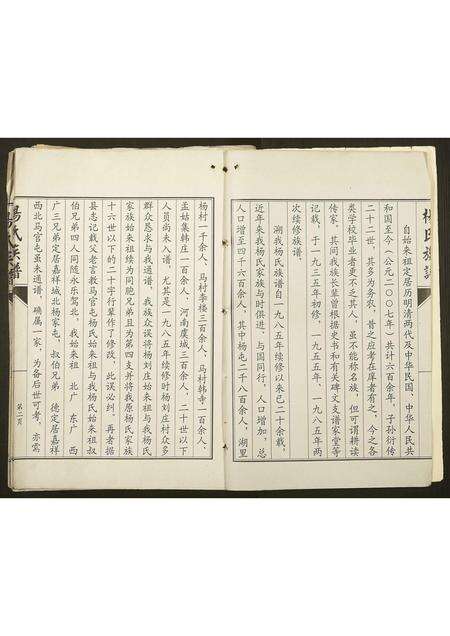 杨氏族谱
自始来祖定居历明清两代及中华民国、中华人民共
和国至今（公元二〇〇七年）共计六百余年，子孙衍传
二十二世，其多为务农，昔之应考在庠者有之，今之各
类学校毕业者更不乏其人，虽不能称名族，但可谓耕读
传家。其间我族长辈曾根据史书和有关碑文支谱家堂等
记载，于一九三五年初修，一九五五年、一九八五年两
次续修族谱。
溯我杨氏族谱自一九八五年续修以来已二十余载，
近年来我杨氏家族与时俱进、与国同行，人口增加，总
人口增至四千六百余人，其中杨屯二千八百余人，湖里
杨村一千余人、马村李楼三百余人，马村韩寺一百余人、
孟姑集韩庄一百余人，河南虞城三百余人，二十世以下
人员尚未入谱。尤其是一九八五年续修时杨刘庄村众多
群众恳求与我通谱，我族众误将杨刘庄始来祖与我杨氏
家族始来祖续为同胞兄弟且为第四支并将我原杨氏家族
十六世以下的二十字行辈作了修改，此误必纠。再者据
县志记载父老言教马官屯杨氏始来祖与我杨氏始来祖叔
伯兄弟四人同随永乐驾北，我始来祖 北 广 东广 西
广三兄弟定居嘉祥城北杨家屯，叔伯兄弟 德定居嘉祥
西北马官屯虽未通谱 确属一家，为备后世可考，亦需
杨氏族谱
第二页